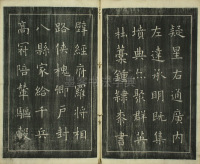 疑星右通廣內
左達承明既集
墳典亦聚群英
杜藁鍾隸漆書
壁經府羅將相
路俠槐卿戶封
八縣家給千兵
高冠陪輦驅轂